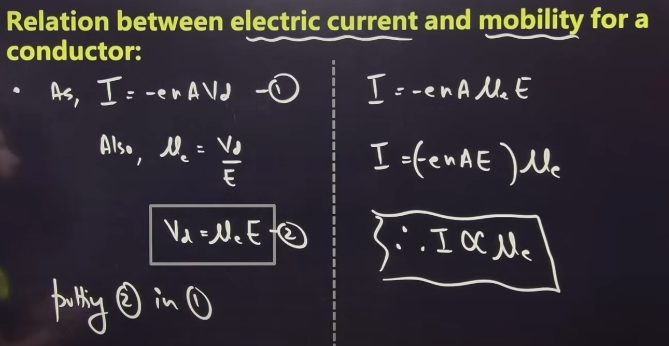 Relation between electric current and mobility for a
conductor:
• As, I = -enAVd -①
Also, μe = Vd/E
Vd = μeE -②
putting ② in ①
I = -enAμeE
I = (-enAE)μe
∴ I ∝ μe